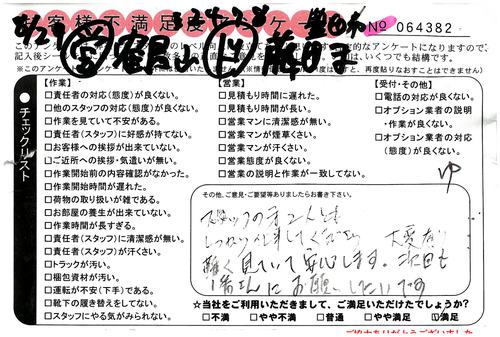 お客様不満足度アンケート
No 064382
※このアンケ
記入後シー
、いくつでも結構です。
再度貼りなおすことはできません）
チェックリスト
【作業】
□責任者の対応（態度）が良くない。
□他のスタッフの対応（態度）が良くない。
□作業を見ていて不安がある。
□責任者（スタッフ）に好感が持てない。
□お客様への挨拶が出来ていない。
□ご近所への挨拶・気遣いが無い。
□作業開始前の内容確認がなかった。
□作業開始時間が遅れた。
□荷物の取り扱いが雑である。
□お部屋の養生が出来ていない。
□作業時間が長すぎる。
□責任者（スタッフ）に清潔感が無い。
□責任者（スタッフ）が汗くさい。
□トラックが汚い。
□梱包資材が汚い。
□運転が不安（下手）である。
□靴下の履き替えをしてない。
□スタッフにやる気がみられない。
【営業】
□見積もり時間に遅れた。
□見積もり時間が長い。
□営業マンに清潔感が無い。
□営業マンが煙草くさい。
□営業マンが汗くさい。
□営業態度が良くない。
□営業の説明と作業が一致してない。
【受付・その他】
□電話の対応が良くない。
□オプション業者の説明
・作業が良くない。
□オプション業者の対応
（態度）が良くない。
その他、ご意見・ご要望等ありましたらお書き下さい。
スタッフの方2人とも
しっかり仕事してくださり 大変有り
難く見ていて安心します。次回も
1番さんにお願いしたいです
☆当社をご利用いただきまして、ご満足いただけたでしょうか？
□不満 □やや不満 □普通 □やや満足 □満足
ご協力ありがとうございました